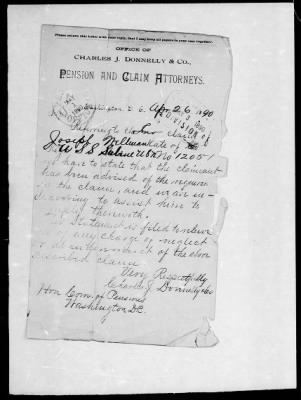 Please return this letter with your reply, that I may keep all papers in your case together.
OFFICE OF
CHARLES J. DONNELLY & CO.,
PENSION AND CLAIM ATTORNEYS.
Washington, D. C. Apr 26 1890
DIVISION
Referring to claim of
Joseph Millman late of
U.S.S. Sabine No 12051
I have to state that the claimant
has been advised of the
in the claim, and we are
to assist him to
comply therewith.
Statement is filed to relieve
us of any charge of neglect
of the above
described claim
Very Respectfully
Charles J. Donnelly & Co
Hon Com. of Pensions
Washington D.C.